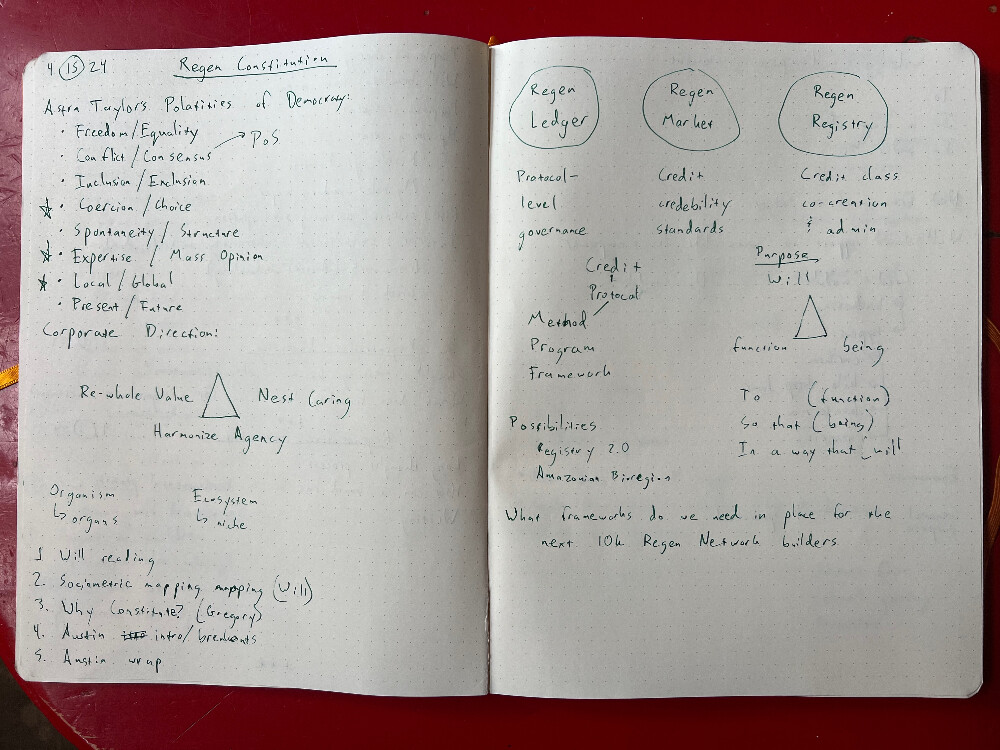 4 15 24
Regen Constitution
Astra Taylor's Polatities of Democracy:
• Freedom/Equality
• Conflict/Consensus → PoS
• Inclusion/Exclusion
• Coercion/Choice
• Spontaneity/Structure
• Expertise/Mass Opinion
• Local/Global
• Present/Future
Corporate Direction:
Re-whole Value
Nest Caring
Harmonize Agency
Organism
↳ organs
Ecosystem
↳ niche
1 Will reading
2. Sociometric mapping mapping (Will)
3. Why Constitute? (Gregory)
4. Austin intro/breakouts
5. Austin wrap
Regen
Ledger
Regen
Market
Regen
Registry
Protocol-
level
governance
Credit
credebility
standards
Credit class
co-creation
& admin
Credit
Protocol
Method
Program
Framework
Purpose
Will
function
being
To (function)
So that (being)
In a way that (will
Possibilities
Registry 2.0
Amazonian Bioregion
What frameworks do we need in place for the
next 10k Regen Network builders